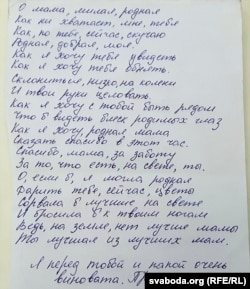 О мама, милая, родная
Как не хватает, мне, тебя
Как, по тебе, сейчас, скучаю
Родная, добрая, моя.
Как я хочу тебя увидеть
Как я хочу тебя обнять.
Склониться, низко, на колени
И твои руки целовать.
Как я хочу с тобой быть рядом
Что б видеть блеск родимых глаз
Как я хочу, родная мама
Сказать спасибо в этот час.
Спасибо, мама, за заботу
За то, что есть, на свете, ты.
О, если б, я могла родная
Дарить тебе, сейчас, цветы
Сорвала б лучшие, на свете
И бросила б к твоим ногам
Ведь, на земле, нет лучше мамы
Ты лучшая из лучших мам.
Я перед тобой и папой очень
виновата.
svaboda.org (RFE/RL)